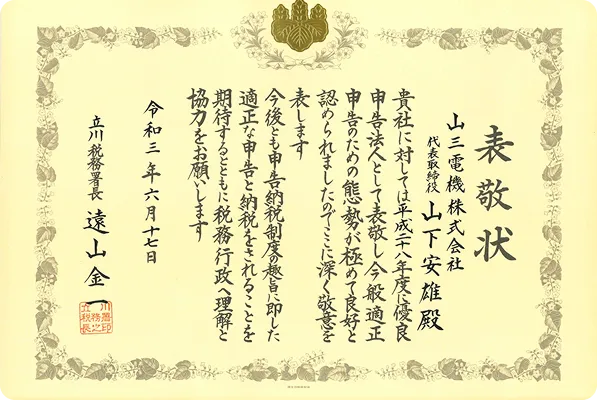 表敬状
山三電機株式会社
代表取締役 山下安雄殿
貴社に対しては平成二十八年度に優良
申告法人として表敬し今般適正
申告のための態勢が極めて良好と
認められましたのでここに深く敬意を
表します
今後とも申告納税制度の趣旨に即した
適正な申告と納税をされることを
期待するとともに税務行政へ理解と
協力をお願いします
令和三年六月十七日
立川税務署長 遠山金一